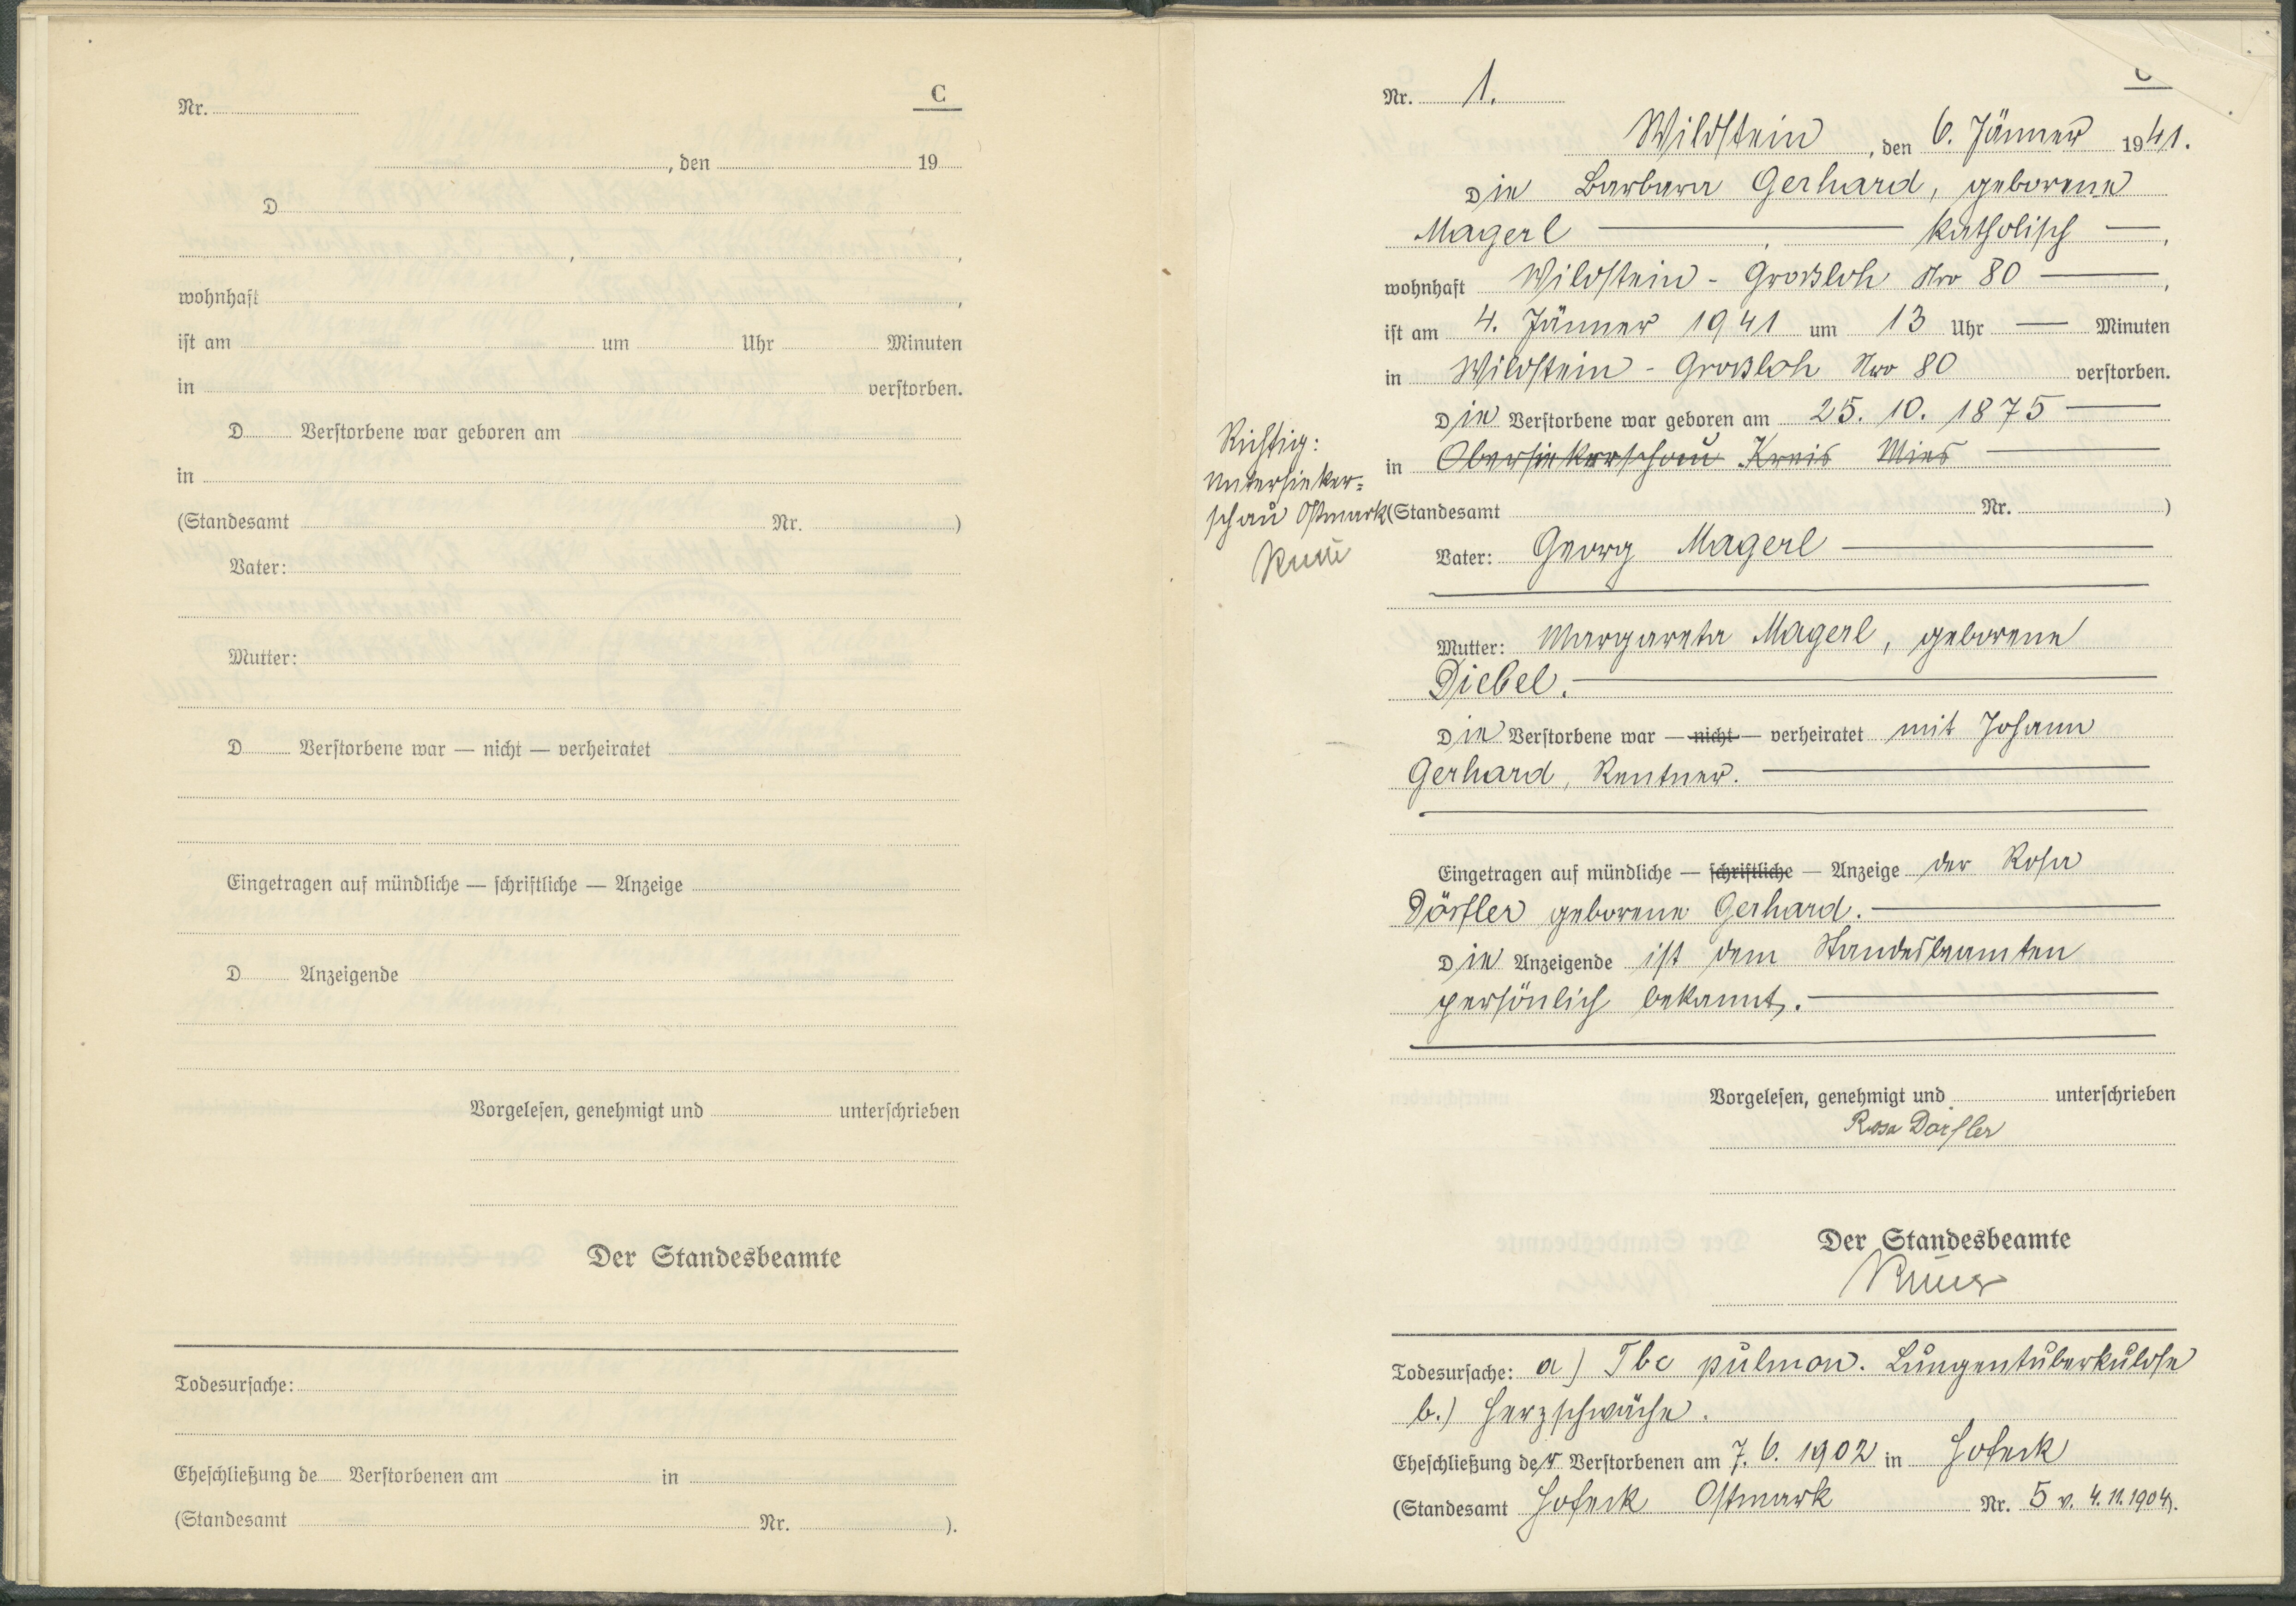 Nr.
C
, den 19
D
,
,
wohnhaft ,
ist am um Uhr Minuten
in verstorben.
D Verstorbene war geboren am
in
(Standesamt Nr. )
Vater:
Mutter:
D Verstorbene war — nicht — verheiratet
Eingetragen auf mündliche — schriftliche — Anzeige
D Anzeigende
Vorgelesen, genehmigt und unterschrieben
Der Standesbeamte
Todesursache:
Eheschließung de Verstorbenen am in
(Standesamt Nr. ).
Nr. 1.
C
Wildstein, den 6. Jänner 1941.
Die Barbara Gerhard, geborene
Magerl — , — katholisch —,
wohnhaft Wildstein - Großloh Nro 80 —,
ist am 4. Jänner 1941 um 13 Uhr — Minuten
in Wildstein - Großloh Nro 80 verstorben.
Die Verstorbene war geboren am 25. 10. 1875 —
in Obersinkerschau Kreis Mies —
Richtig:
Untersinker=
schau Ostmark
(Standesamt Nr. )
Vater: Georg Magerl —
Mutter: Margareta Magerl, geborene
Diebel. —
Die Verstorbene war — nicht — verheiratet mit Johann
Gerhard, Rentner. —
Eingetragen auf mündliche — schriftliche — Anzeige der Rosa
Dörfler geborene Gerhard. —
Die Anzeigende ist dem Standesbeamten
persönlich bekannt. —
Vorgelesen, genehmigt und unterschrieben
Rosa Dörfler
Der Standesbeamte
Todesursache: a) Tbc pulmon. Lungentuberkulose
b.) Herzschwäche.
Eheschließung der Verstorbenen am 7. 6. 1902 in Hofeck
(Standesamt Hofeck Ostmark Nr. 5 v. 4. 11. 1904).